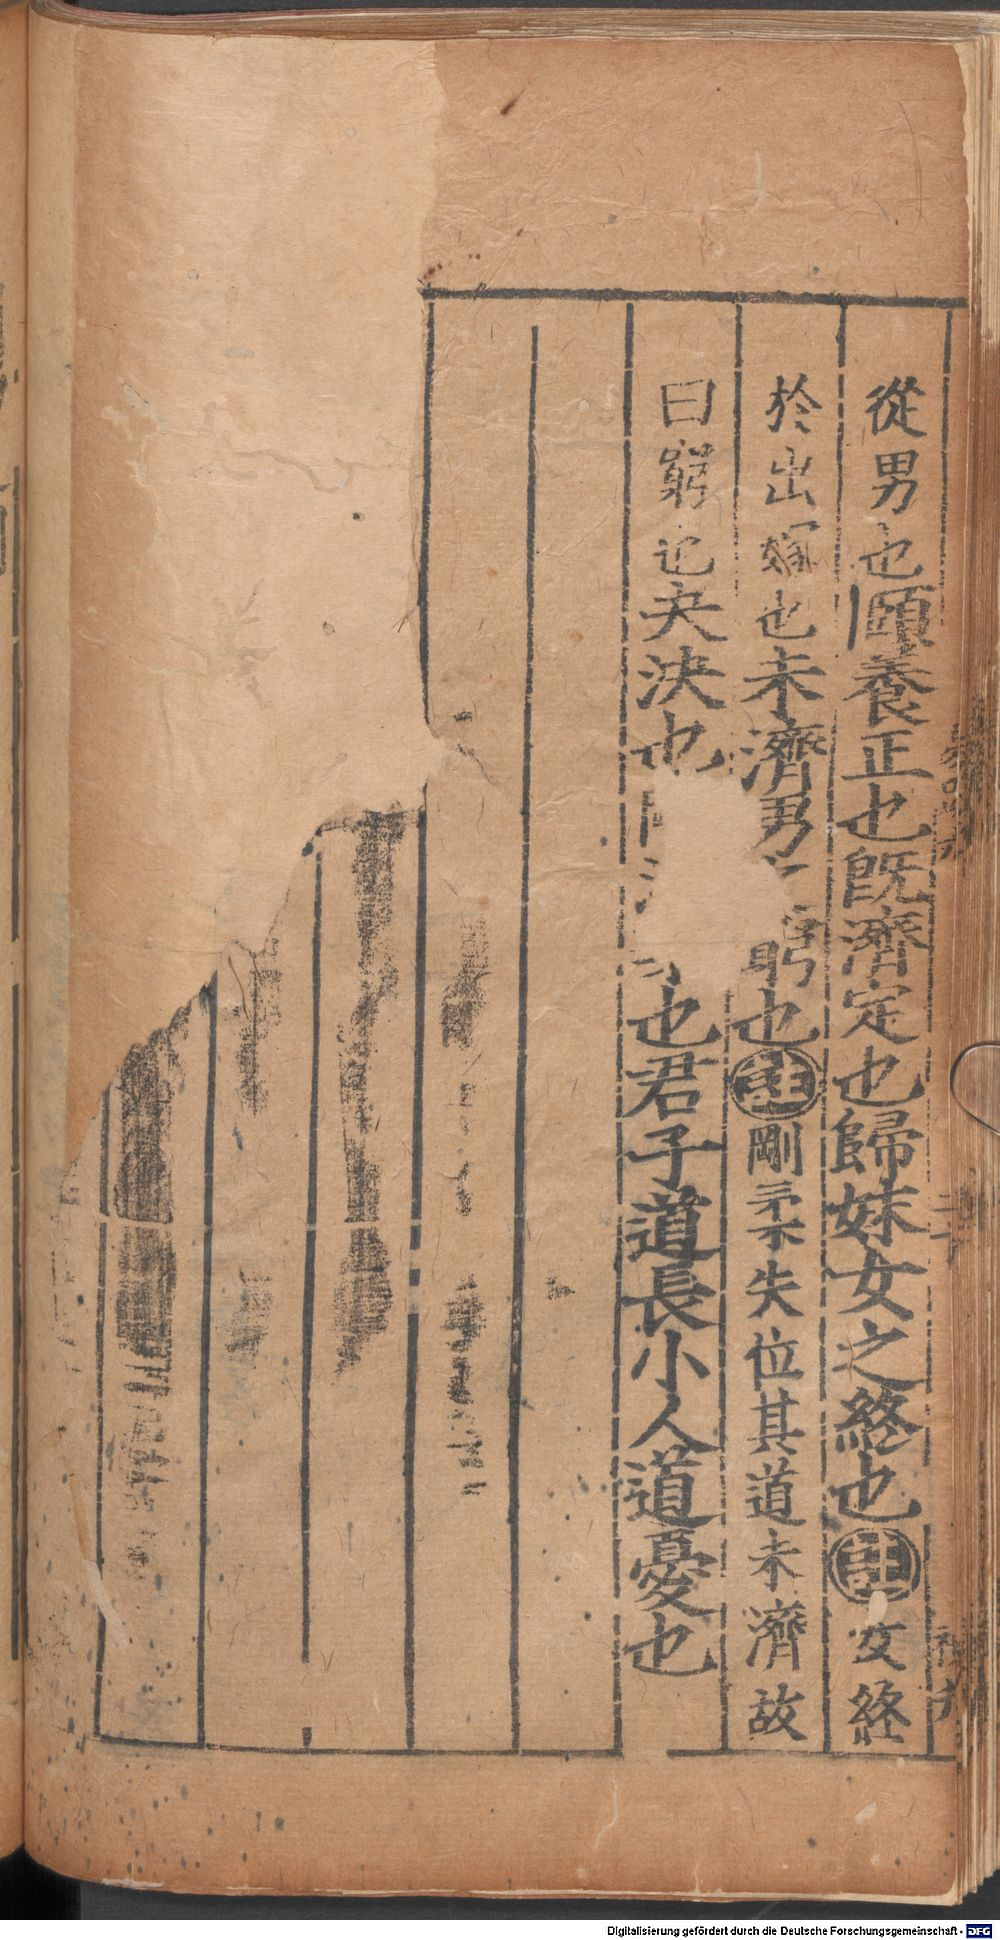 從男也頤養正也旣濟定也歸妹女之終也註女終
於出嫁也未濟男窮也註剛柔失位其道未濟故
曰窮也夬決也也君子道長小人道憂也
Digitalisierung gefördert durch die Deutsche Forschungsgemeinschaft - DFG